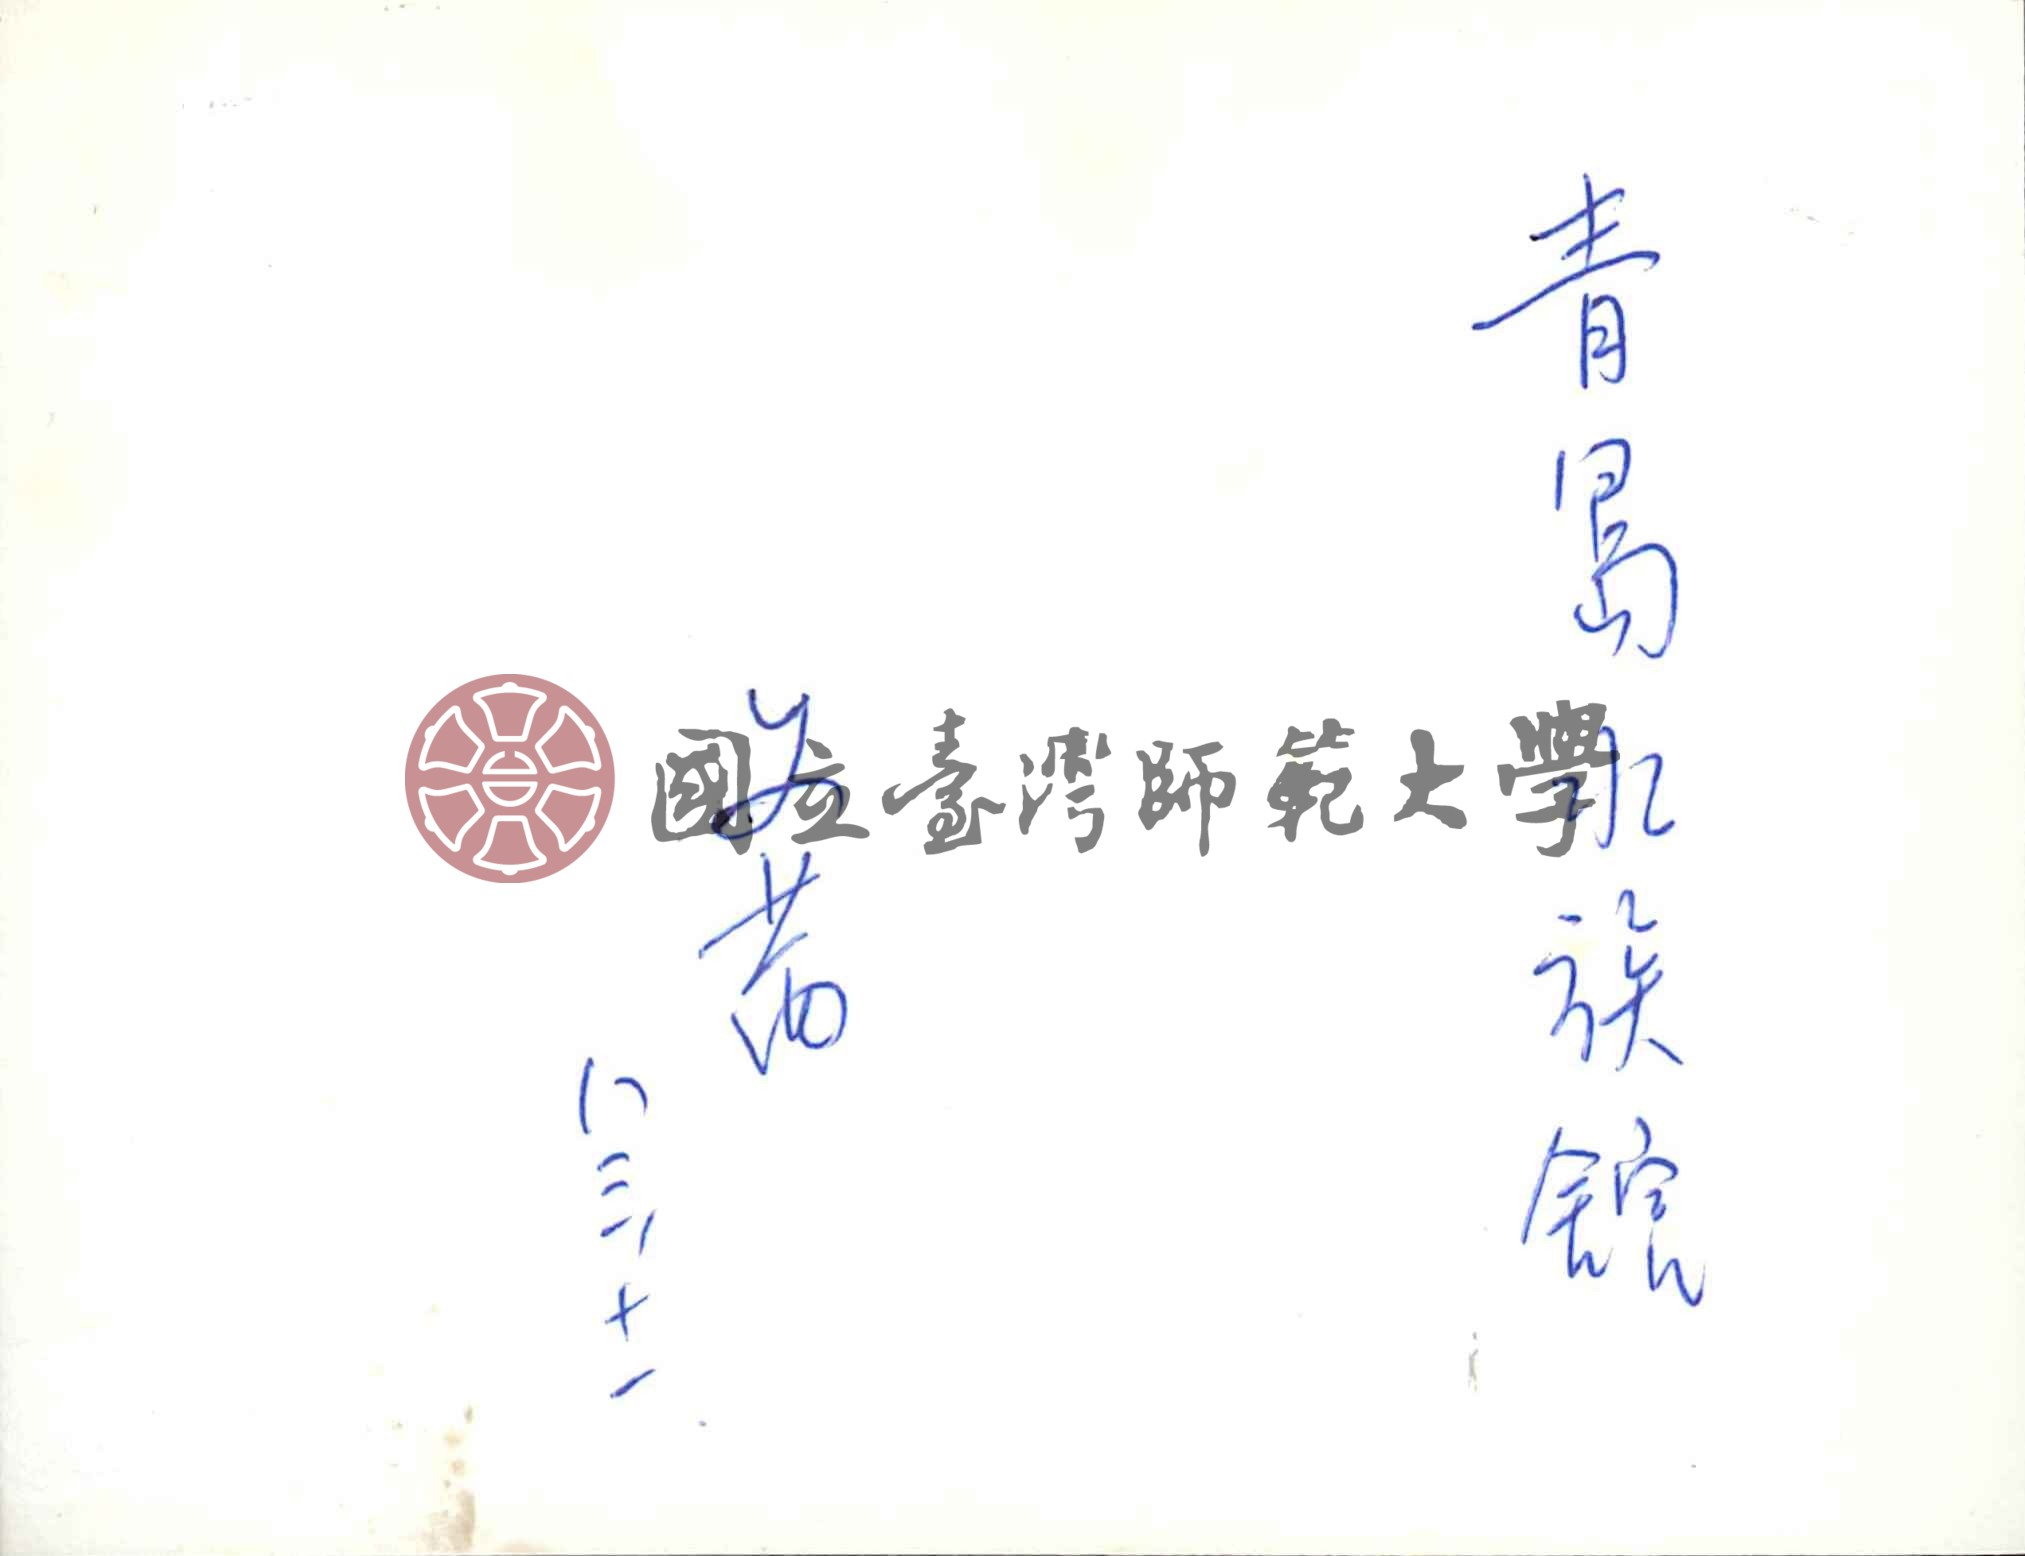 青島水族館
文薔
八三、十一
國立臺灣師範大學